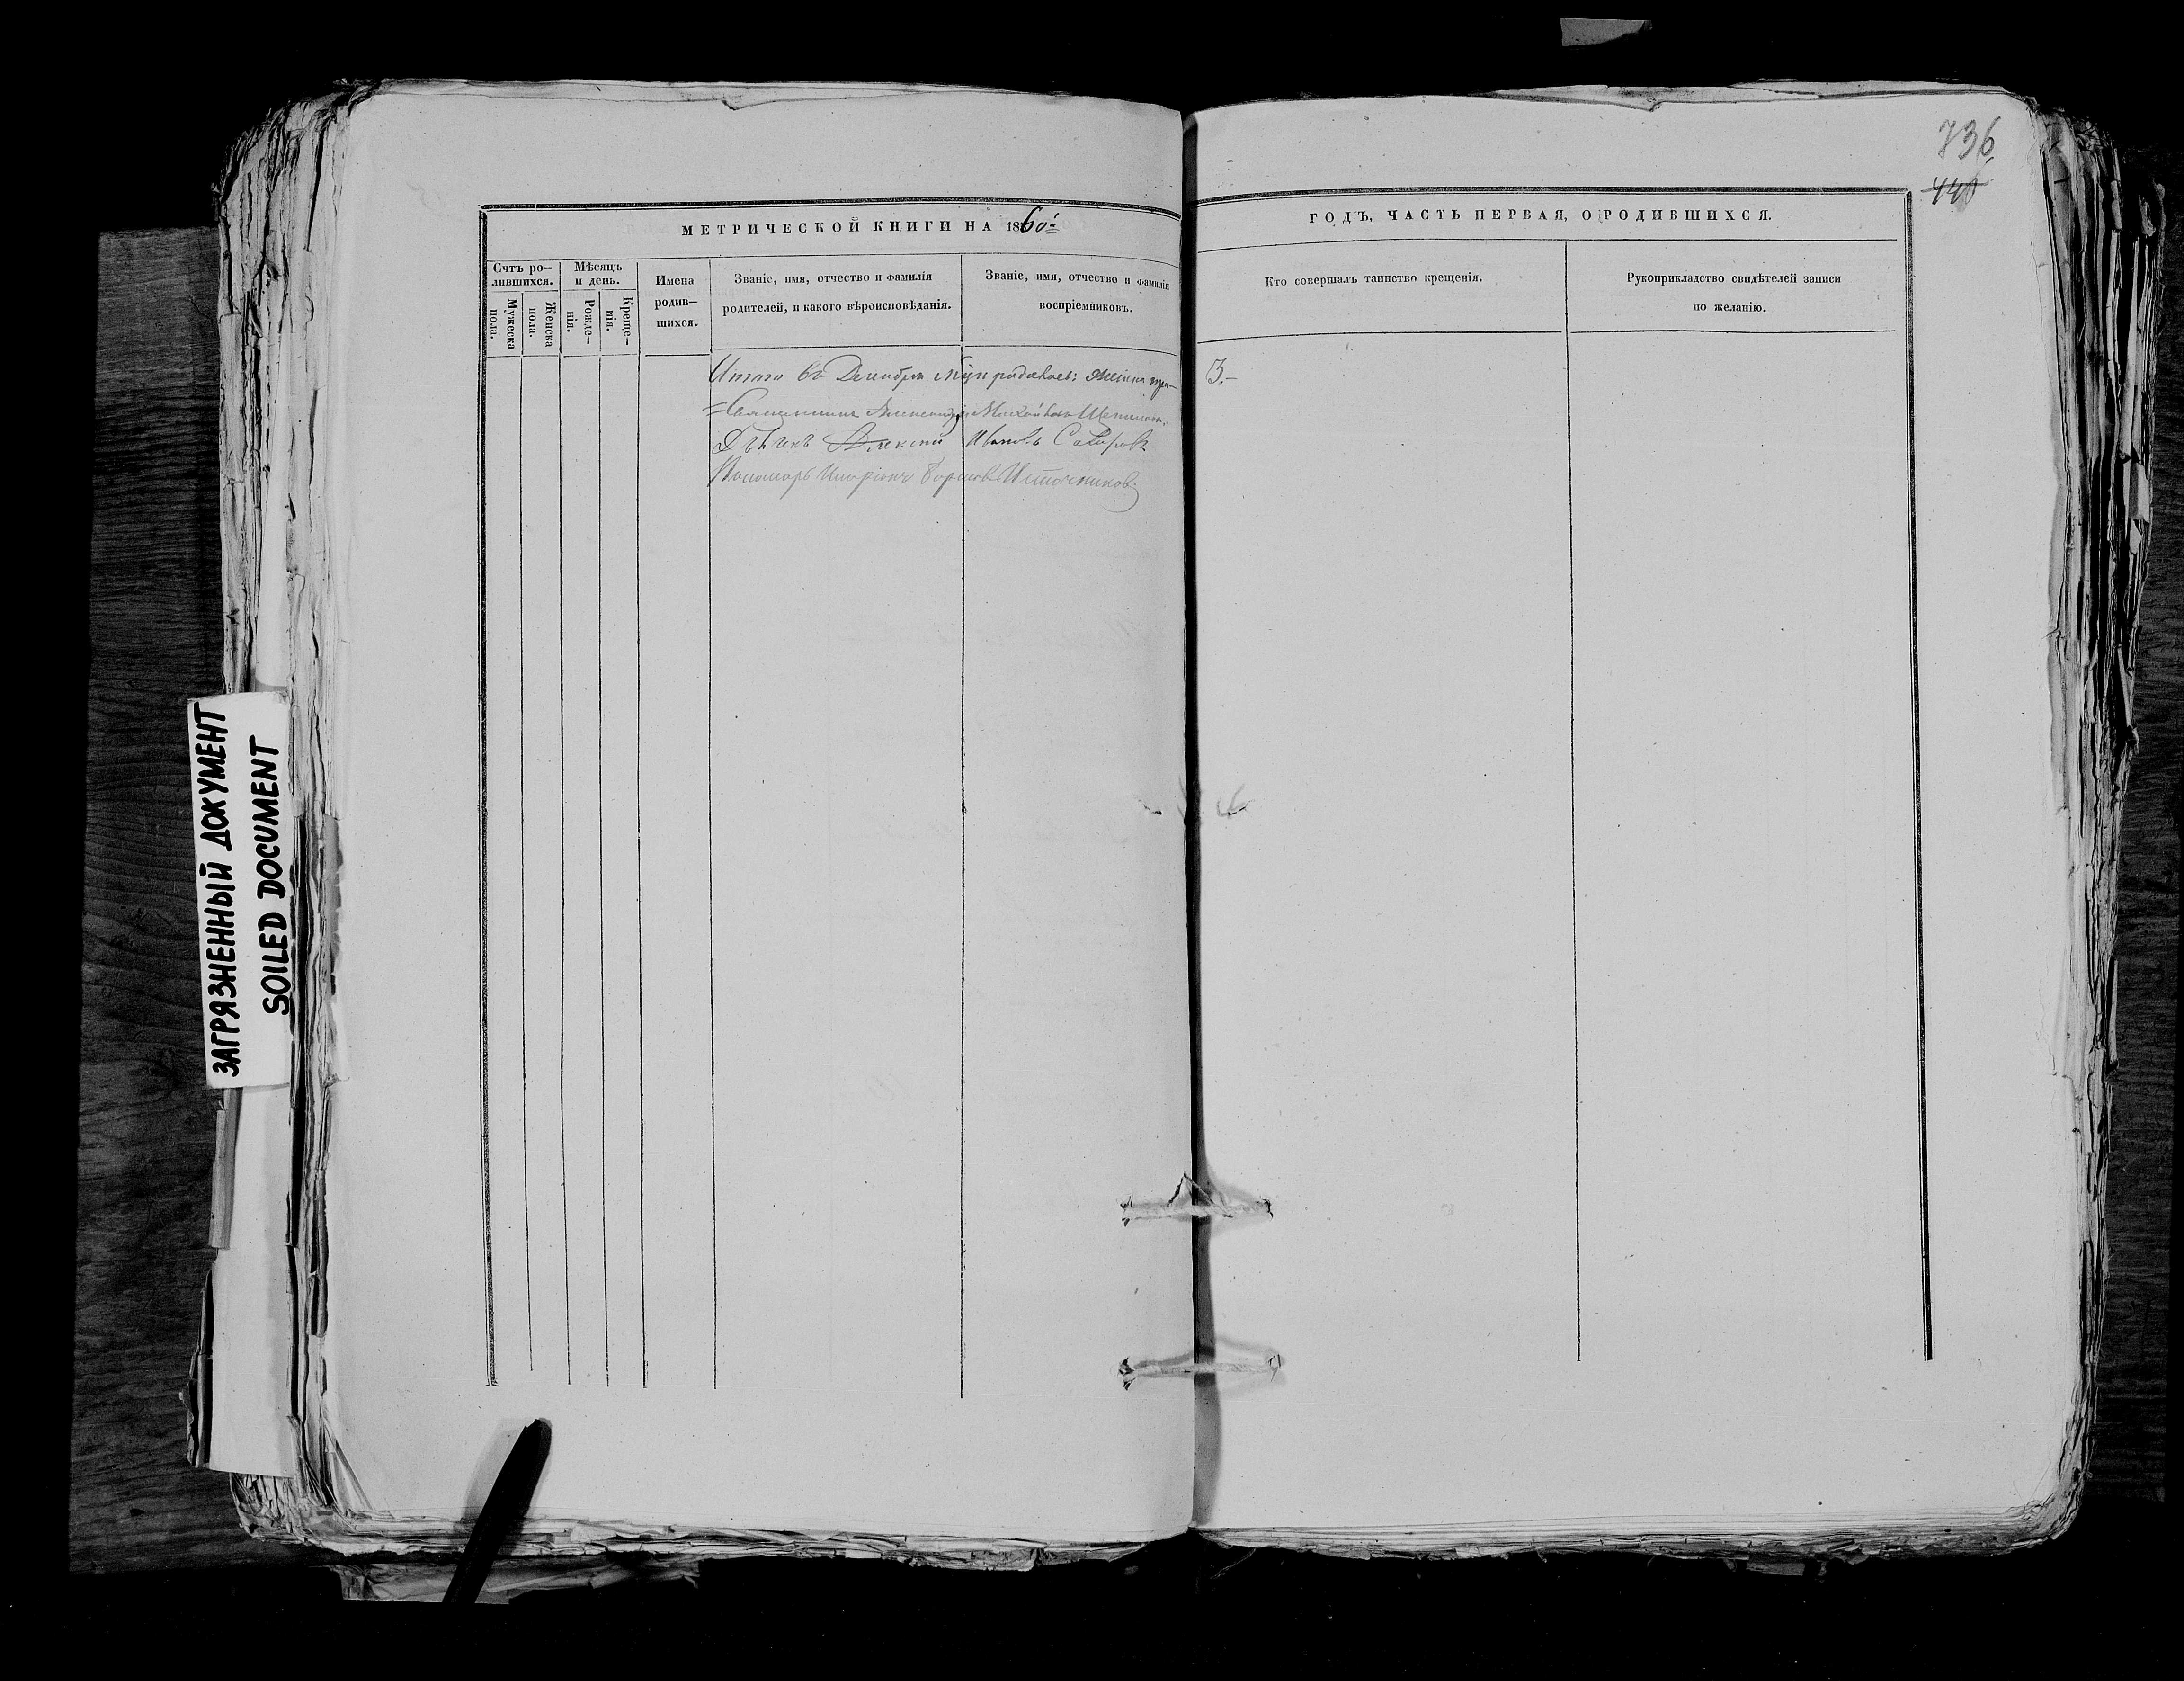 736
440
МЕТРИЧЕСКОЙ КНИГИ НА 1860й
ГОДЪ, ЧАСТЬ ПЕРВАЯ, О РОДИВШИХСЯ.
Счтъ ро-
лившихся.
Мужеска
пола.
Женска
пола.
Мѣсяцъ
и день.
Рожде-
нія.
Креще-
нія.
Имена
родив-
шихся.
Званіе, имя, отчество и фамилія
родителей, и какого вѣроисповѣданія.
Званіе, имя, отчество и фамилія
воспріемниковъ.
Кто совершалъ таинство крещенія.
Рукоприкладство свидѣтелей записи
по желанію.
Итого въ Декабрѣ родилось: женска 3.-
Священникъ Александръ
Дьячекъ Алексѣй Ивановъ
Пономарь Иларіонъ Источниковъ
ЗАГРЯЗНЕННЫЙ ДОКУМЕНТ
SOILED DOCUMENT